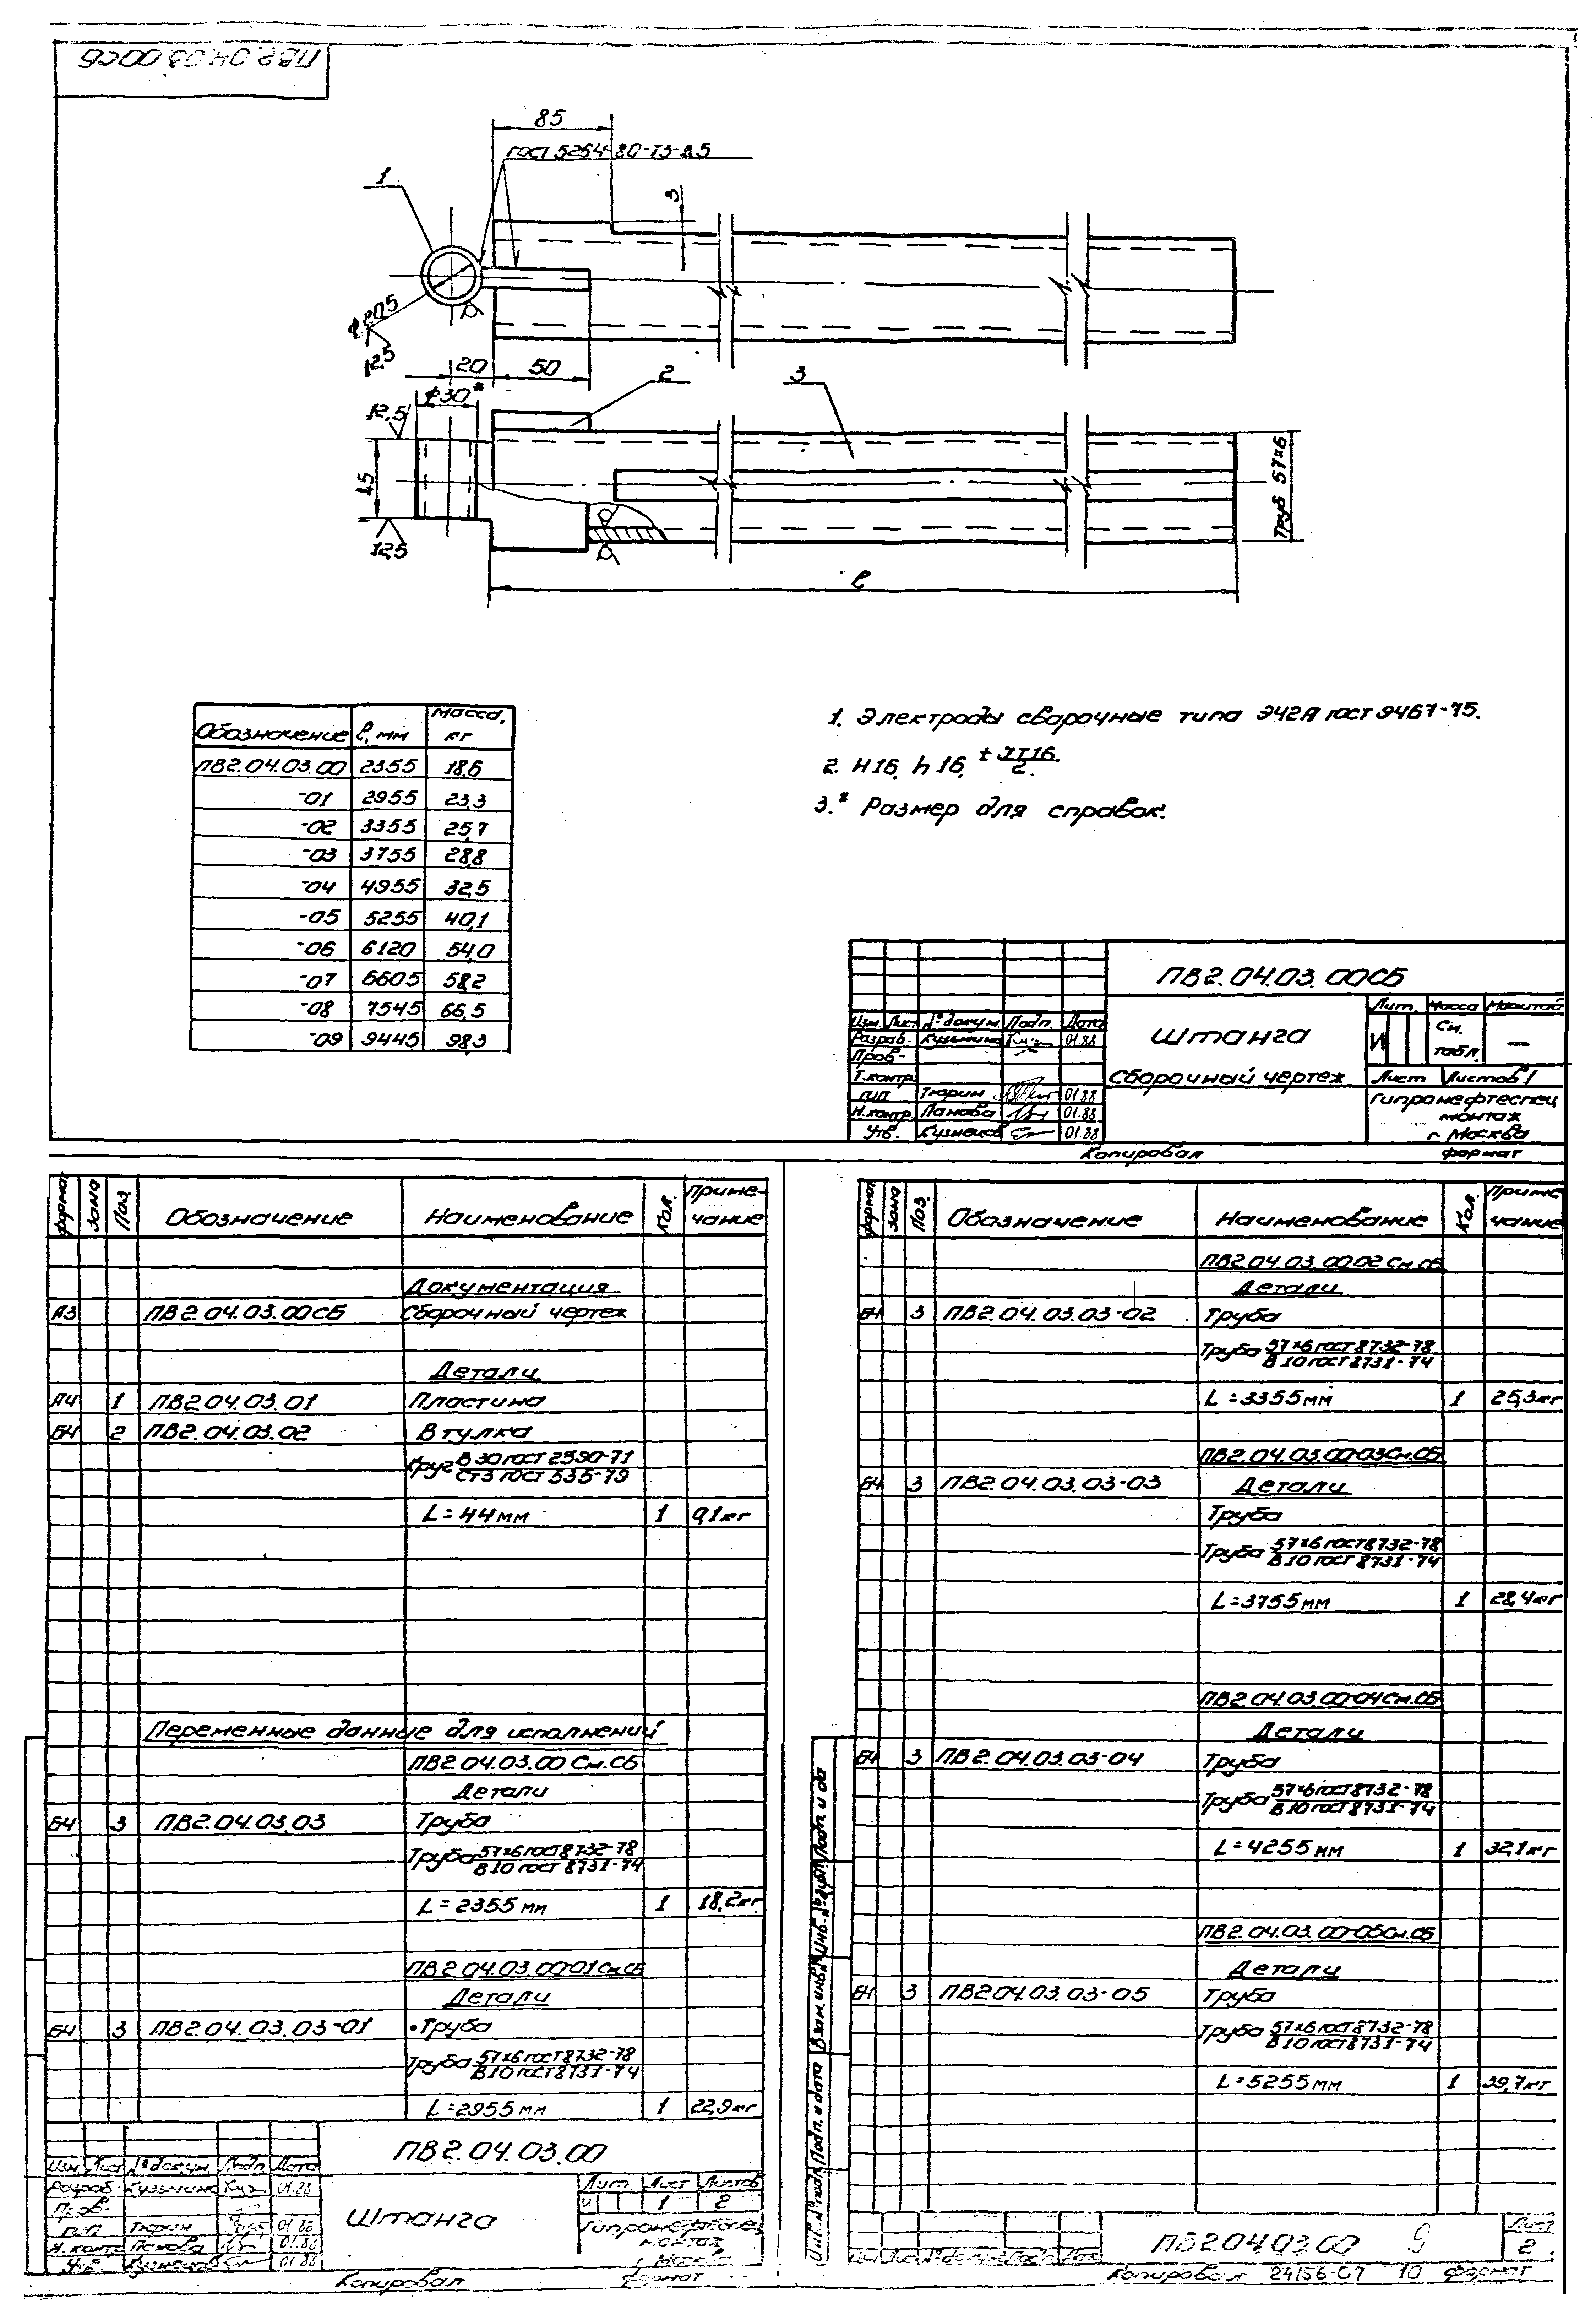 ПВ2.04.03.00СБ
85
ГОСТ 5264-80-Т3-
1
3
⌀20,5
12,5
20
50
2
3
⌀30*
12,5
45
12,5
Труб 57×6
ℓ
Обозначение ℓ, мм масса, кг
ПВ2.04.03.00 2355 18,6
-01 2955 23,3
-02 3355 25,7
-03 3755 28,8
-04 4955 32,5
-05 5255 40,1
-06 6120 54,0
-07 6605 58,2
-08 7545 66,5
-09 9445 98,3
1. Электроды сварочные типа Э42А ГОСТ 9467-75.
2. H16, h16, ± IT16/2.
3.* Размер для справок.
ПВ2.04.03.00СБ
Штанга
Сборочный чертеж
Лит. Масса Масштаб
И См. табл. —
Лист Листов 1
Гипронефтеспец
монтаж
г. Москва
Изм. Лист № докум. Подп. Дата
Разраб. Кузьмина 01.88
Пров.
Т.контр.
ГИП Тюрин 01.88
Н.контр. Панова 01.88
Утв. Кузнецов 01.88
Копировал формат
формат зона Поз. Обозначение Наименование Кол. Примечание
Документация
А3 ПВ2.04.03.00СБ Сборочный чертеж
Детали
А4 1 ПВ2.04.03.01 Пластина
Б4 2 ПВ2.04.03.02 Втулка
Круг В 30 ГОСТ 2590-71
Ст3 ГОСТ 535-79
L=44мм 1 0,1кг
Переменные данные для исполнений
ПВ2.04.03.00 См.СБ
Детали
Б4 3 ПВ2.04.03.03 Труба
Труба 57×6 ГОСТ 8732-78
В10 ГОСТ 8731-74
L=2355мм 1 18,2кг
ПВ2.04.03.00-01 См.СБ
Детали
Б4 3 ПВ2.04.03.03-01 Труба
Труба 57×6 ГОСТ 8732-78
В10 ГОСТ 8731-74
L=2955мм 1 22,9кг
ПВ2.04.03.00
Штанга
Изм. Лист № докум. Подп. Дата
Разраб. Кузьмина 01.88
Пров.
ГИП Тюрин 01.88
Н.контр. Панова 01.88
Утв. Кузнецов 01.88
Лит. Лист Листов
И 1 2
Гипронефтеспец
монтаж
г. Москва
Копировал формат
формат зона Поз. Обозначение Наименование Кол. Примечание
ПВ2.04.03.00-02 См.СБ
Детали
Б4 3 ПВ2.04.03.03-02 Труба
Труба 57×6 ГОСТ 8732-78
В10 ГОСТ 8731-74
L=3355мм 1 25,3кг
ПВ2.04.03.00-03 См.СБ
Б4 3 ПВ2.04.03.03-03 Детали
Труба
Труба 57×6 ГОСТ 8732-78
В10 ГОСТ 8731-74
L=3755мм 1 28,4кг
ПВ2.04.03.00-04 См.СБ
Детали
Б4 3 ПВ2.04.03.03-04 Труба
Труба 57×6 ГОСТ 8732-78
В10 ГОСТ 8731-74
L=4255мм 1 32,1кг
ПВ2.04.03.00-05 См.СБ
Детали
Б4 3 ПВ2.04.03.03-05 Труба
Труба 57×6 ГОСТ 8732-78
В10 ГОСТ 8731-74
L=5255мм 1 39,7кг
Инв.№ подл. Подп. и дата Взам. инв.№ Инв.№ дубл. Подп. и да
Изм. Лист № докум. Подп. Дата
ПВ2.04.03.00 9
Лист
2
Копировал 24156-07 10 формат